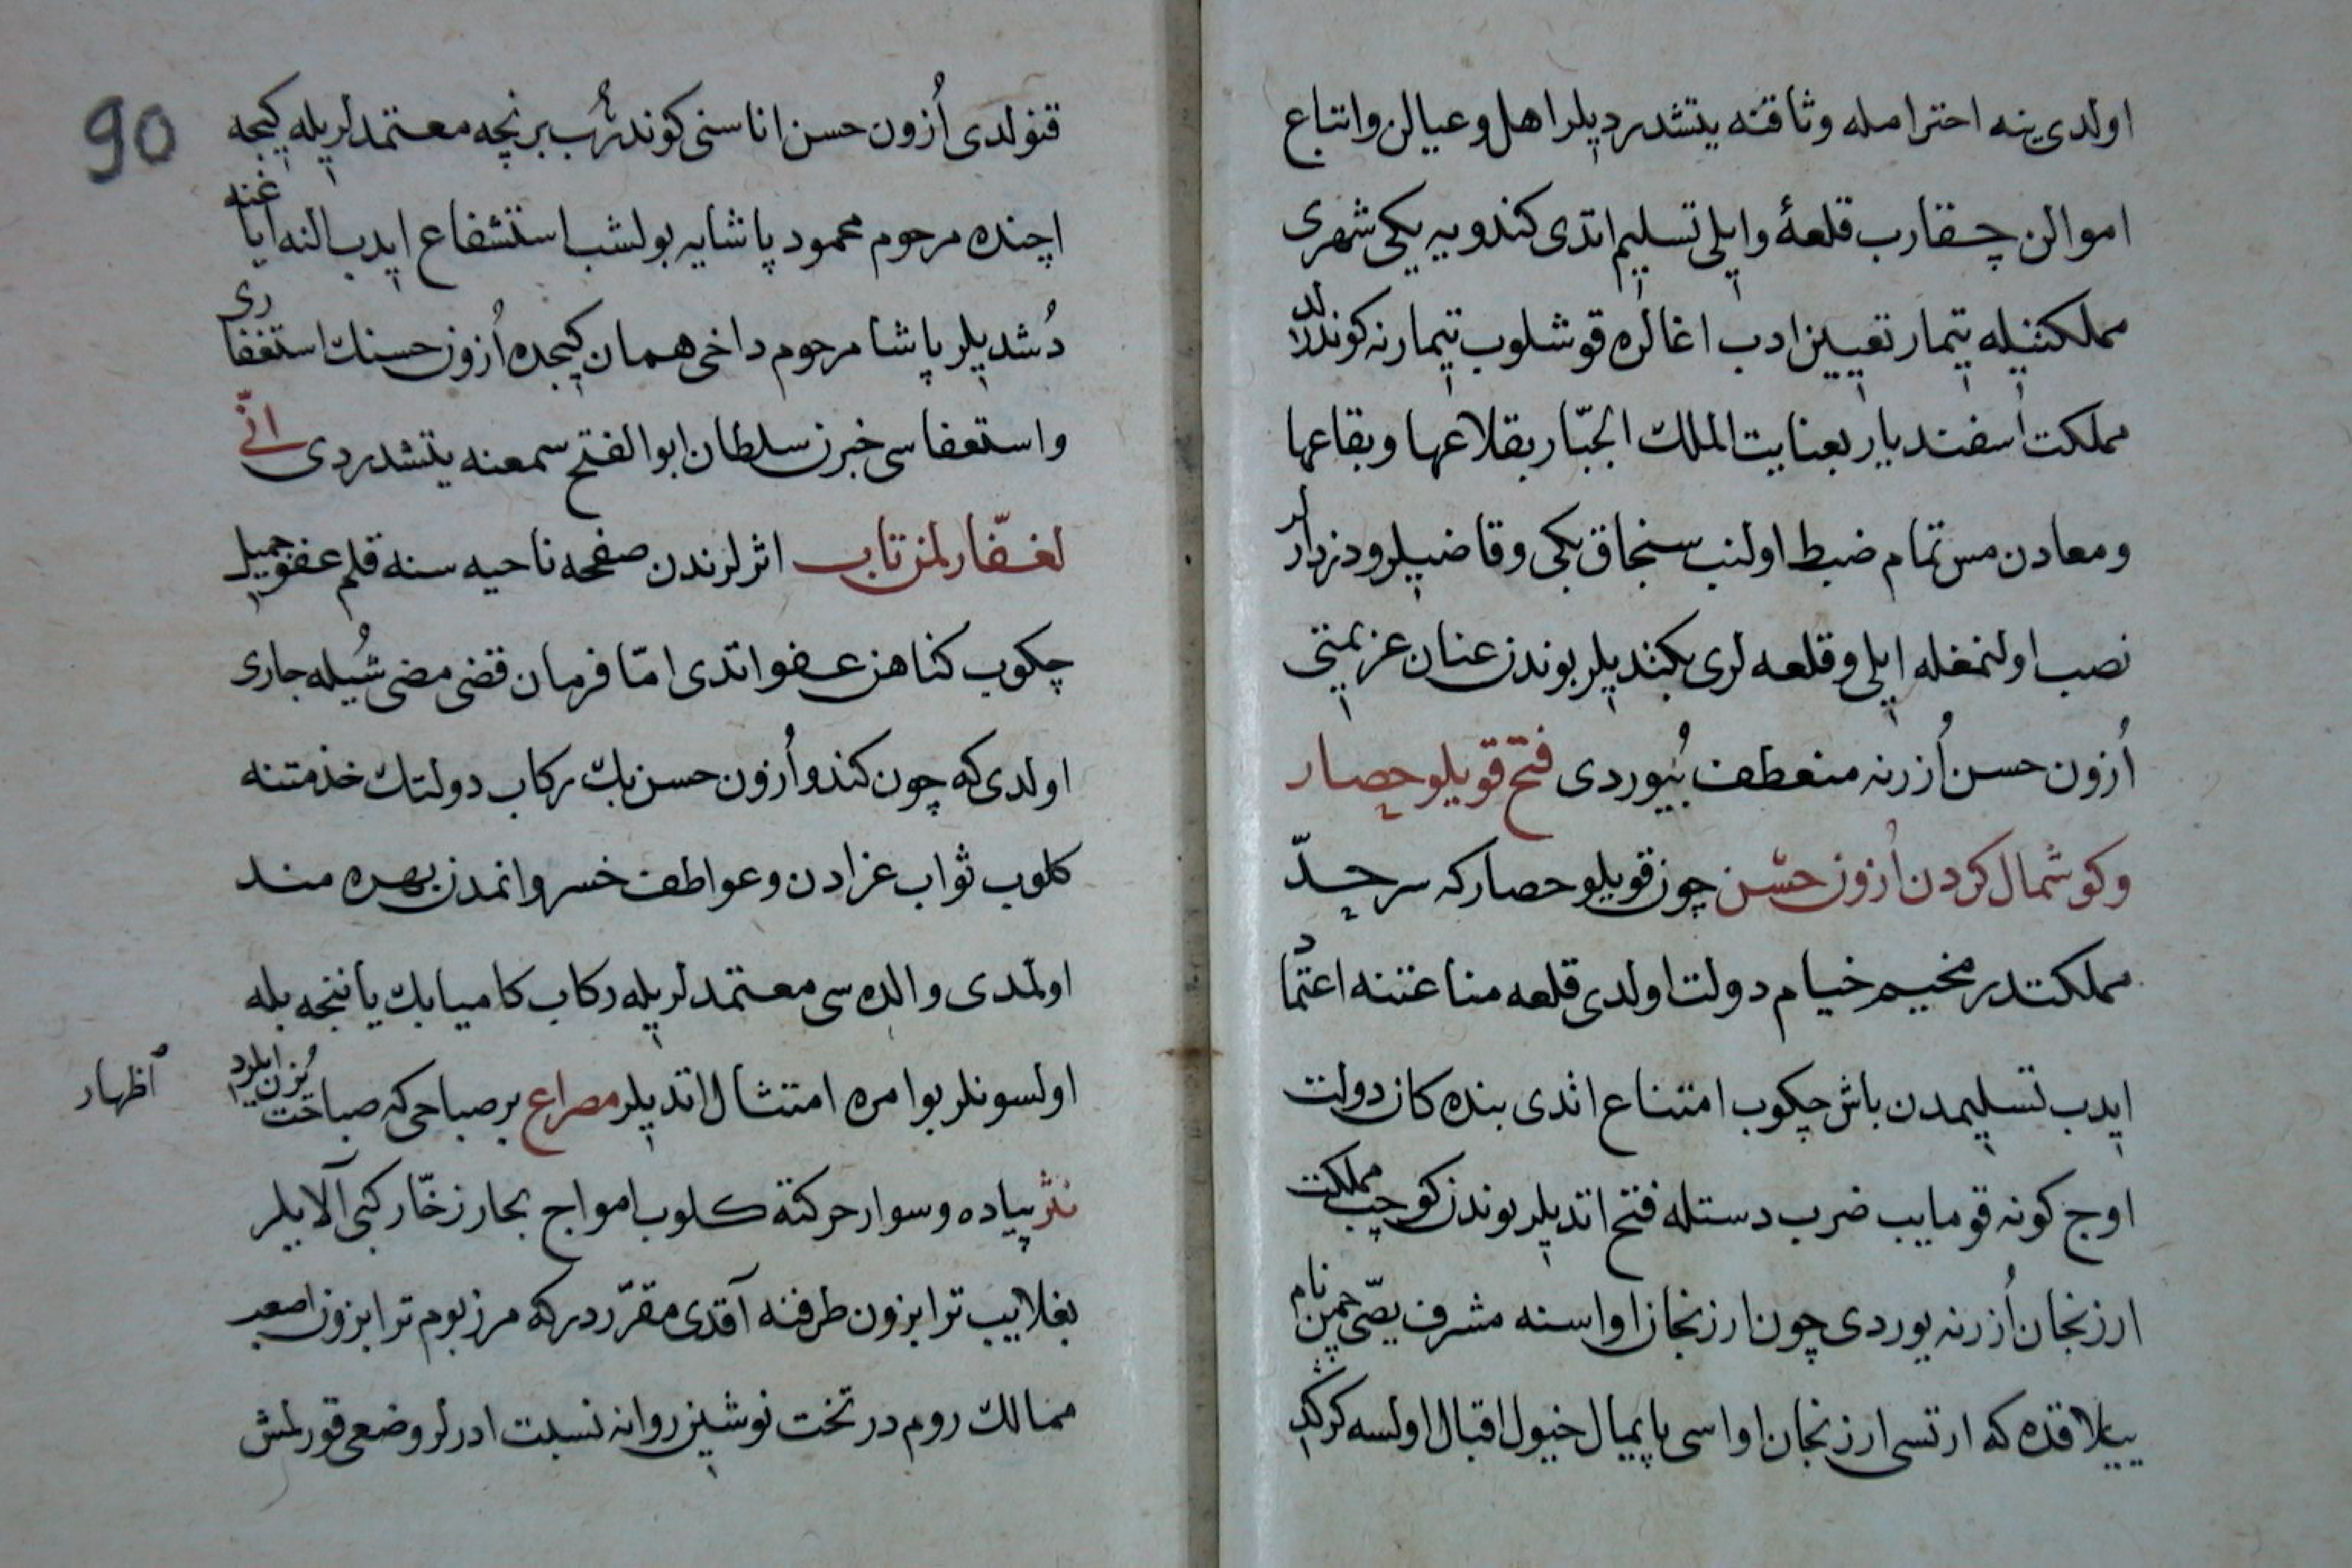 اولدی ینه احترامله وثاقنه یتشدردیلر اهل وعیالن واتباع
اموالن چقارب قلعۀ وایلی تسلیم اتدی کندویه یکی شهری
مملکتیله تیمار تعیین ادب اغالره قوشلوب تیمارنه کوندردلر
مملکت اسفندیار بعنایت الملك الجبّار بقلاعها وبقاعها
ومعادن مس تمام ضبط اولنب سنجاق بکی وقاضیلر ودزدارلر
نصب اولنمغله ایلی وقلعه لری بکندیلر بوندن عنان عزیمتی
اُزون حسن اُزرنه منعطف بُیوردی فتح قویلو حصار
وکوشمال کردن اُزون حسن چون قویلو حصار که سرحدّ
مملکتدر مخیم خیام دولت اولدی قلعه مناعتنه اعتماد
ایدب تسلیمدن باش چکوب امتناع اتدی بنده کان دولت
اوج کونه قومایب ضرب دستله فتح اتدیلر بوندن کوچب مملکت
ارزنجان اُزرنه یوردی چون ارزنجان اواسنه مشرف یصّی چمن نام
ییلاقده که ارتسی ارزنجان اواسی پایمال خیول اقبال اولسه کرکدی
90
قنولدی اُزون حسن اناسنی کوندرُب برنچه معتمدلریله کیجه
اچنده مرحوم محمود پاشایه بولشب استشفاع ایدب النه ایاغنه
دُشدیلر پاشا مرحوم داخی همان کیجده اُزون حسنك استغفاری
واستعفاسی خبرن سلطان ابوالفتح سمعنه یتشدردی انّی
لغفّار لمن تاب اثرلرندن صفحه ناحیه سنه قلم عفو جمیل
چکوب کناهن عفو اتدی امّا فرمان قضی مضی شُیله جاری
اولدی که چون کندو اُزون حسن بك رکاب دولتك خذمتنه
کلوب ثواب غزادن وعواطف خسروانمدن بهره مند
اولمدی والده سی معتمدلریله رکاب کامیابك یاننجه بله
اولسونلر بو امره امتثال اتدیلر مصراع بر صباحی که صباحت یُزن ایلردی
اظهار
نثر پیاده وسوار حرکتة کلوب امواج بحار زخّار کبی آلایلر
بغلاییب ترابزون طرفنه آقدی مقرّردر که مرزبوم ترابزون اصعب
ممالك روم در تخت نوشین روانه نسبت ادرلر وضعی قورلمش